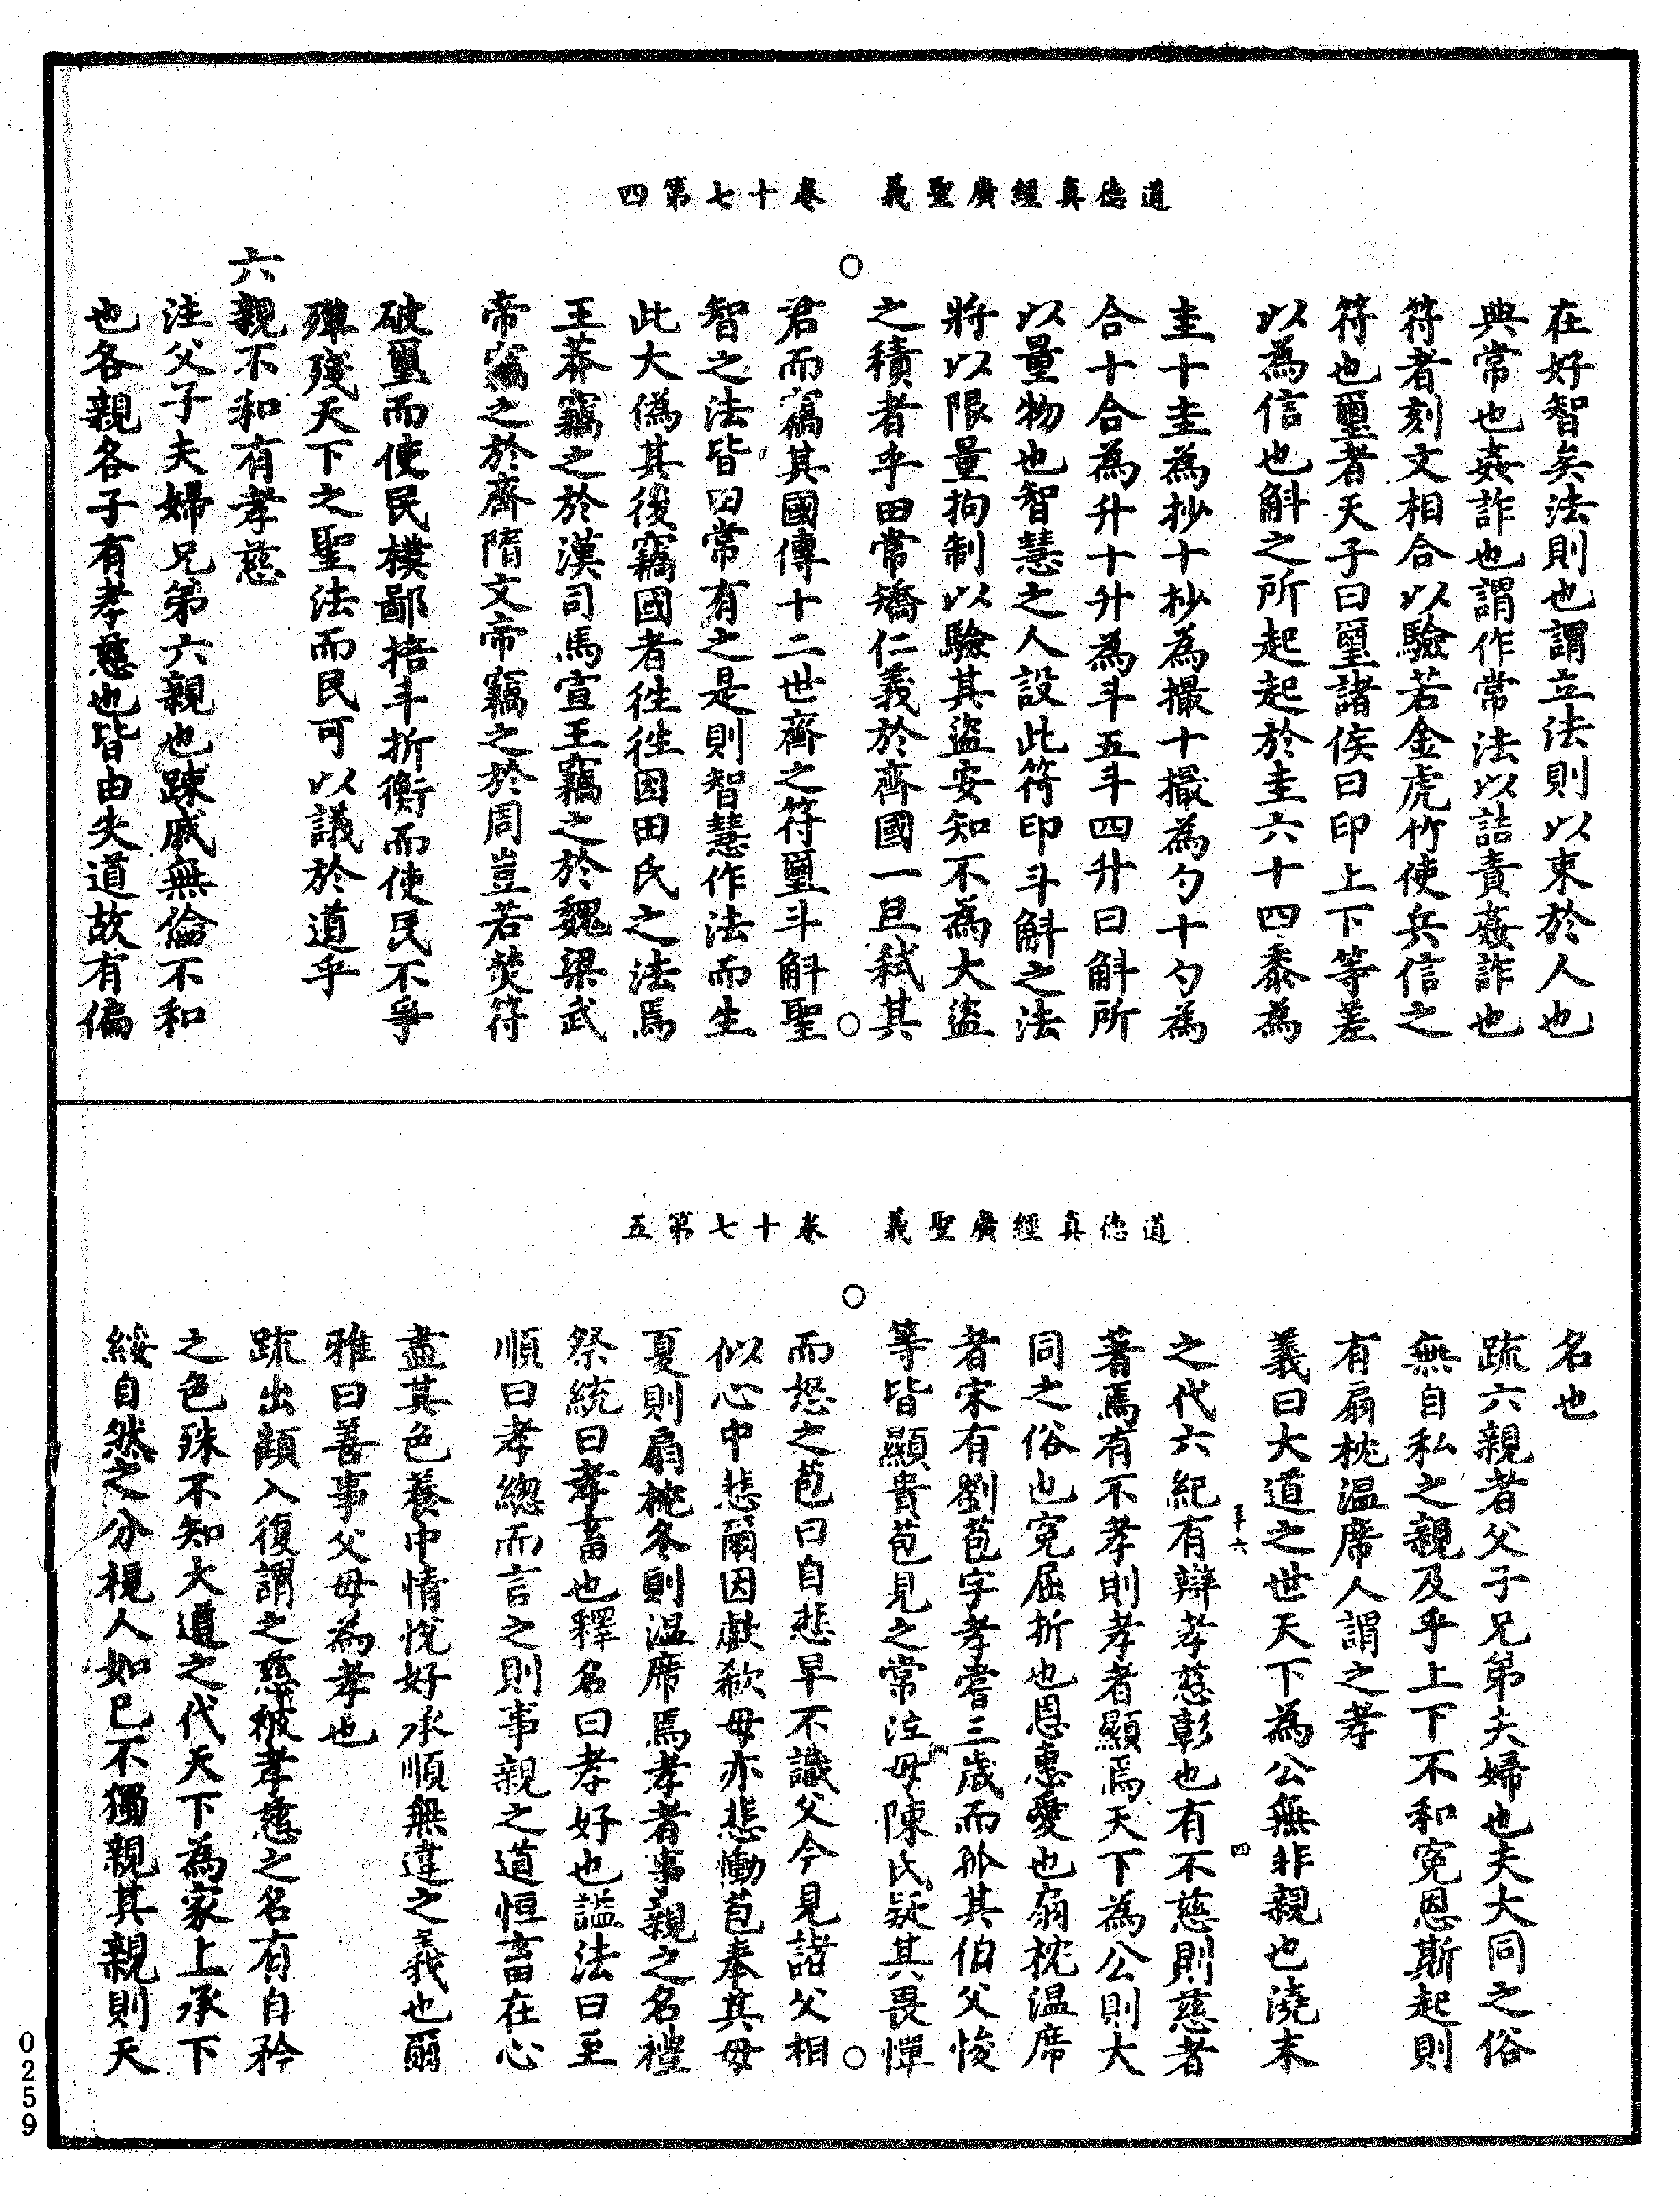 道德真經廣聖義　卷十七第四
在好智矣法則也謂立法則以束於人也
典常也姦詐也謂作常法以詰責姦詐也
符者刻文相合以驗若金虎竹使兵信之
符也璽者天子曰璽諸侯曰印上下等差
以為信也斛之所起起於圭六十四黍為
圭十圭為抄十抄為撮十撮為勺十勺為
合十合為升十升為斗五斗四升曰斛所
以量物也智慧之人設此符印斗斛之法
將以限量拘制以驗其盜安知不為大盜
之積者乎田常矯仁義於齊國一旦弒其
君而竊其國傳十二世齊之符璽斗斛聖
智之法皆田常有之是則智慧作法而生
此大偽其後竊國者徃徃因田氏之法焉
王莽竊之於漢司馬宣王竊之於魏梁武
帝竊之於齊隋文帝竊之於周豈若焚符
破璽而使民樸鄙掊斗折衡而使民不爭
殫殘天下之聖法而民可以議於道乎
六親不和有孝慈
注父子夫婦兄弟六親也踈戚無倫不和
也各親各子有孝慈也皆由失道故有偏
道德真經廣聖義　卷十七第五
名也
疏六親者父子兄弟夫婦也夫大同之俗
無自私之親及乎上下不和寃恩斯起則
有扇枕温席人謂之孝
義曰大道之世天下為公無非親也澆末
之代六紀有辯孝慈彰也有不慈則慈者
著焉有不孝則孝者顯焉天下為公則大
同之俗也寃屈折也恩惠愛也扇枕温席
者宋有劉苞字孝嘗三歲而孤其伯父悛
等皆顯貴苞見之常泣母陳氏疑其畏憚
而怒之苞曰自悲早不識父今見諸父相
似心中悲爾因歔欷母亦悲慟苞奉其母
夏則扇枕冬則温席焉孝者事親之名禮
祭統曰孝畜也釋名曰孝好也謚法曰至
順曰孝緫而言之則事親之道恒畜在心
盡其色養中情悅好承順無違之義也爾
雅曰善事父母為孝也
疏出顏入復謂之慈被孝慈之名有自矜
之色殊不知大道之代天下為家上承下
綏自然之分視人如己不獨親其親則天
0259